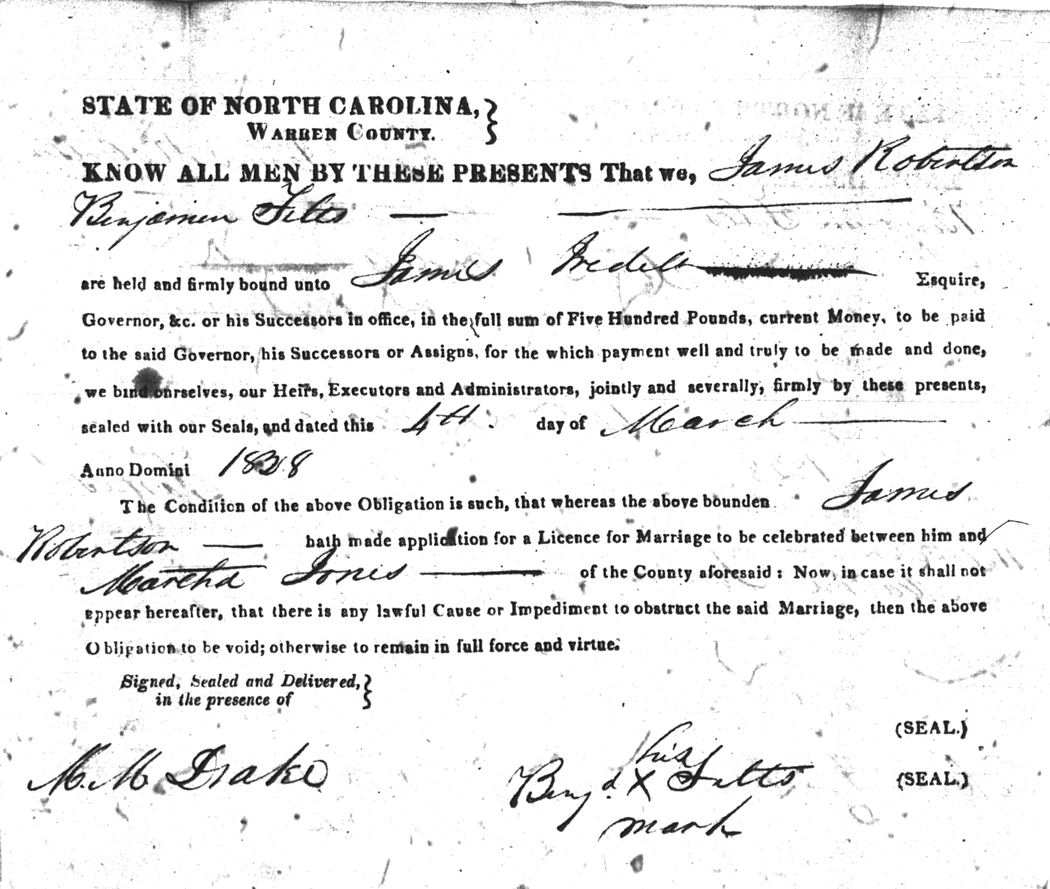 STATE OF NORTH CAROLINA,
WARREN COUNTY.
KNOW ALL MEN BY THESE PRESENTS That we, James Robertson
Benjamin Felts
are held and firmly bound unto James Iredell Esquire,
Governor, &c. or his Successors in office, in the full sum of Five Hundred Pounds, current Money, to be paid
to the said Governor, his Successors or Assigns, for the which payment well and truly to be made and done,
we bind ourselves, our Heirs, Executors and Administrators, jointly and severally, firmly by these presents,
sealed with our Seals, and dated this 4th. day of March
Anno Domini 1828
The Condition of the above Obligation is such, that whereas the above bounden James
Robertson hath made application for a Licence for Marriage to be celebrated between him and
Martha Jones of the County aforesaid: Now, in case it shall not
appear hereafter, that there is any lawful Cause or Impediment to obstruct the said Marriage, then the above
Obligation to be void; otherwise to remain in full force and virtue.
Signed, Sealed and Delivered,
in the presence of
(SEAL.)
his
M. M Drake Benj. X Felts (SEAL.)
mark